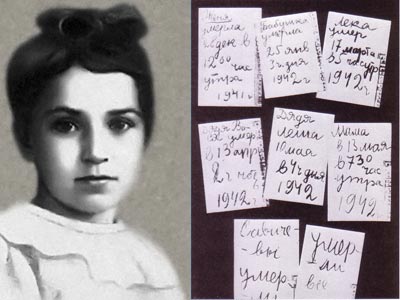 Женя
умерла
28 дек в
12 00 час
утра
1941 г
Бабушка
умерла
25 янв
3 ч дня
1942 г
Лека
умер
17 марта в
5 час утр
1942 г
Дядя Ва-
ся умер
в 13 апр
2 ч ноч
1942 г
Дядя
Леша
10 мая
в 4 ч дня
1942
Мама
в 13 мая
в 7 30
час
утра
1942 г
Савиче-
вы
умер-
ли
Умер-
ли
все